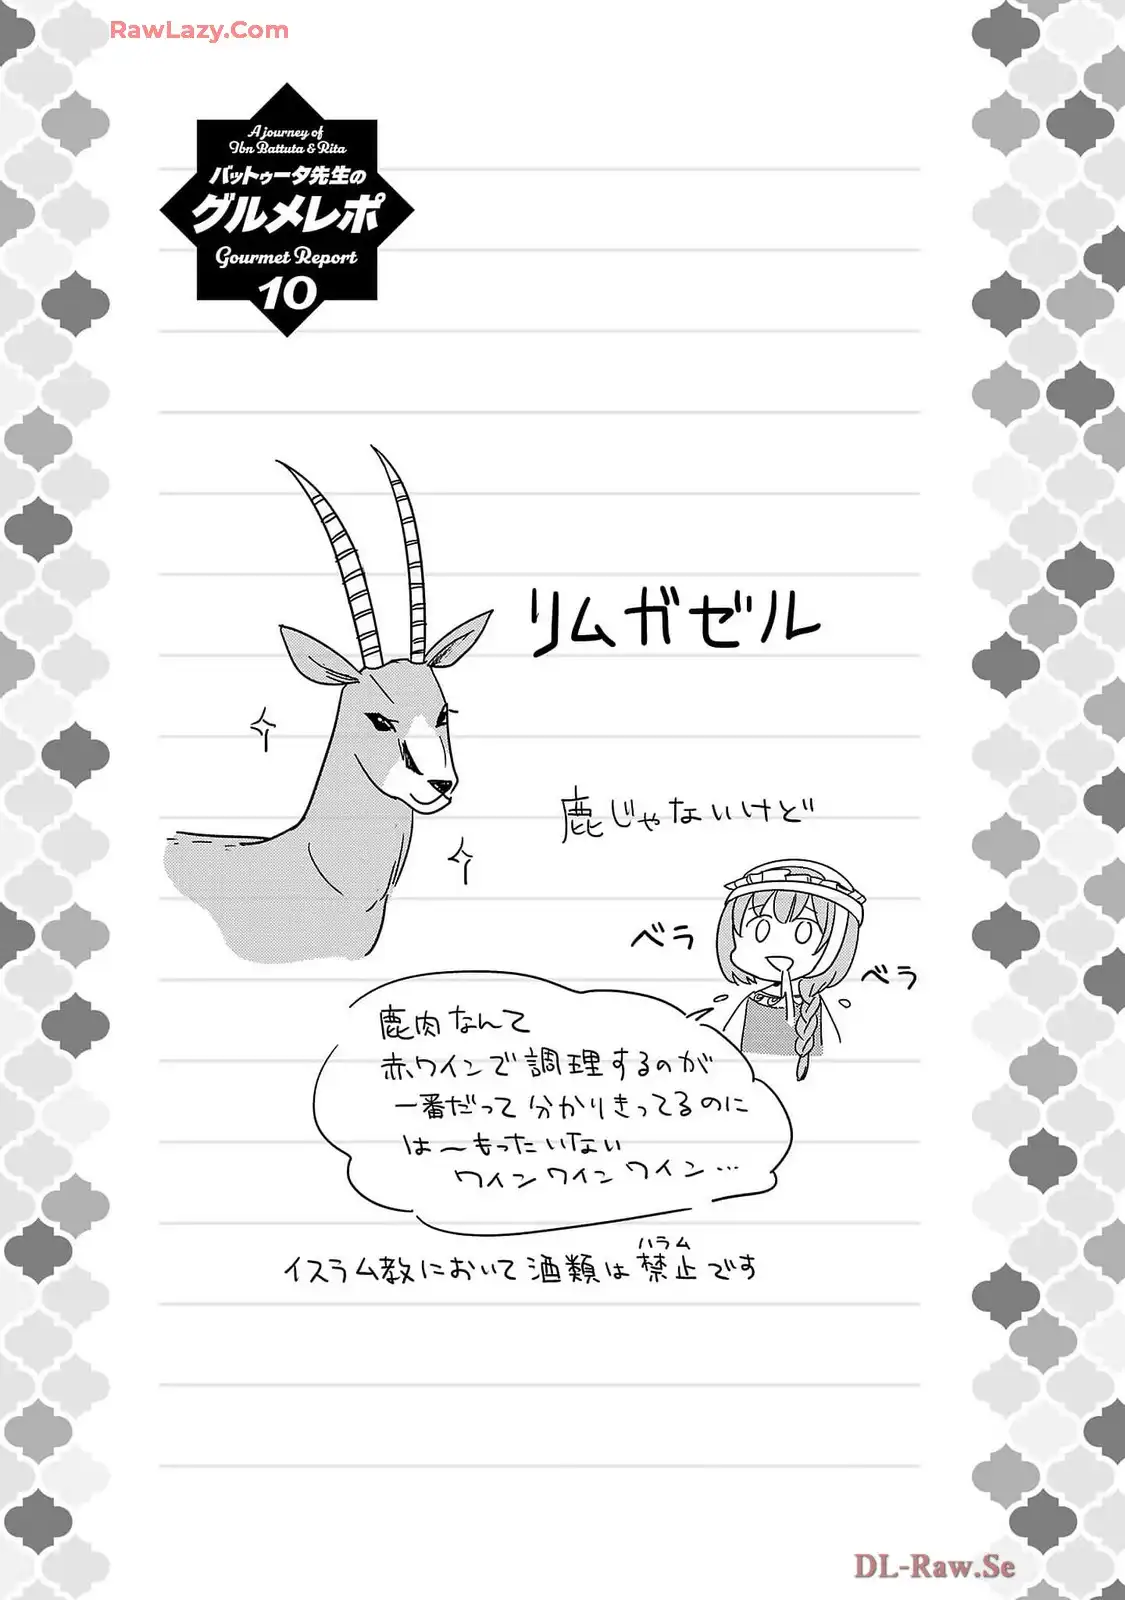 RawLazy.Com
A journey of
Ibn Battuta & Rita
バットゥータ先生の
グルメレポ
Gourmet Report
10
リムガゼル
鹿じゃないけど
ベラ
ベラ
鹿肉なんて
赤ワインで調理するのが
一番だって分かりきってるのに
は〜もったいない
ワインワインワイン…
ハラム
イスラム教において酒類は禁止です
DL-Raw.Se